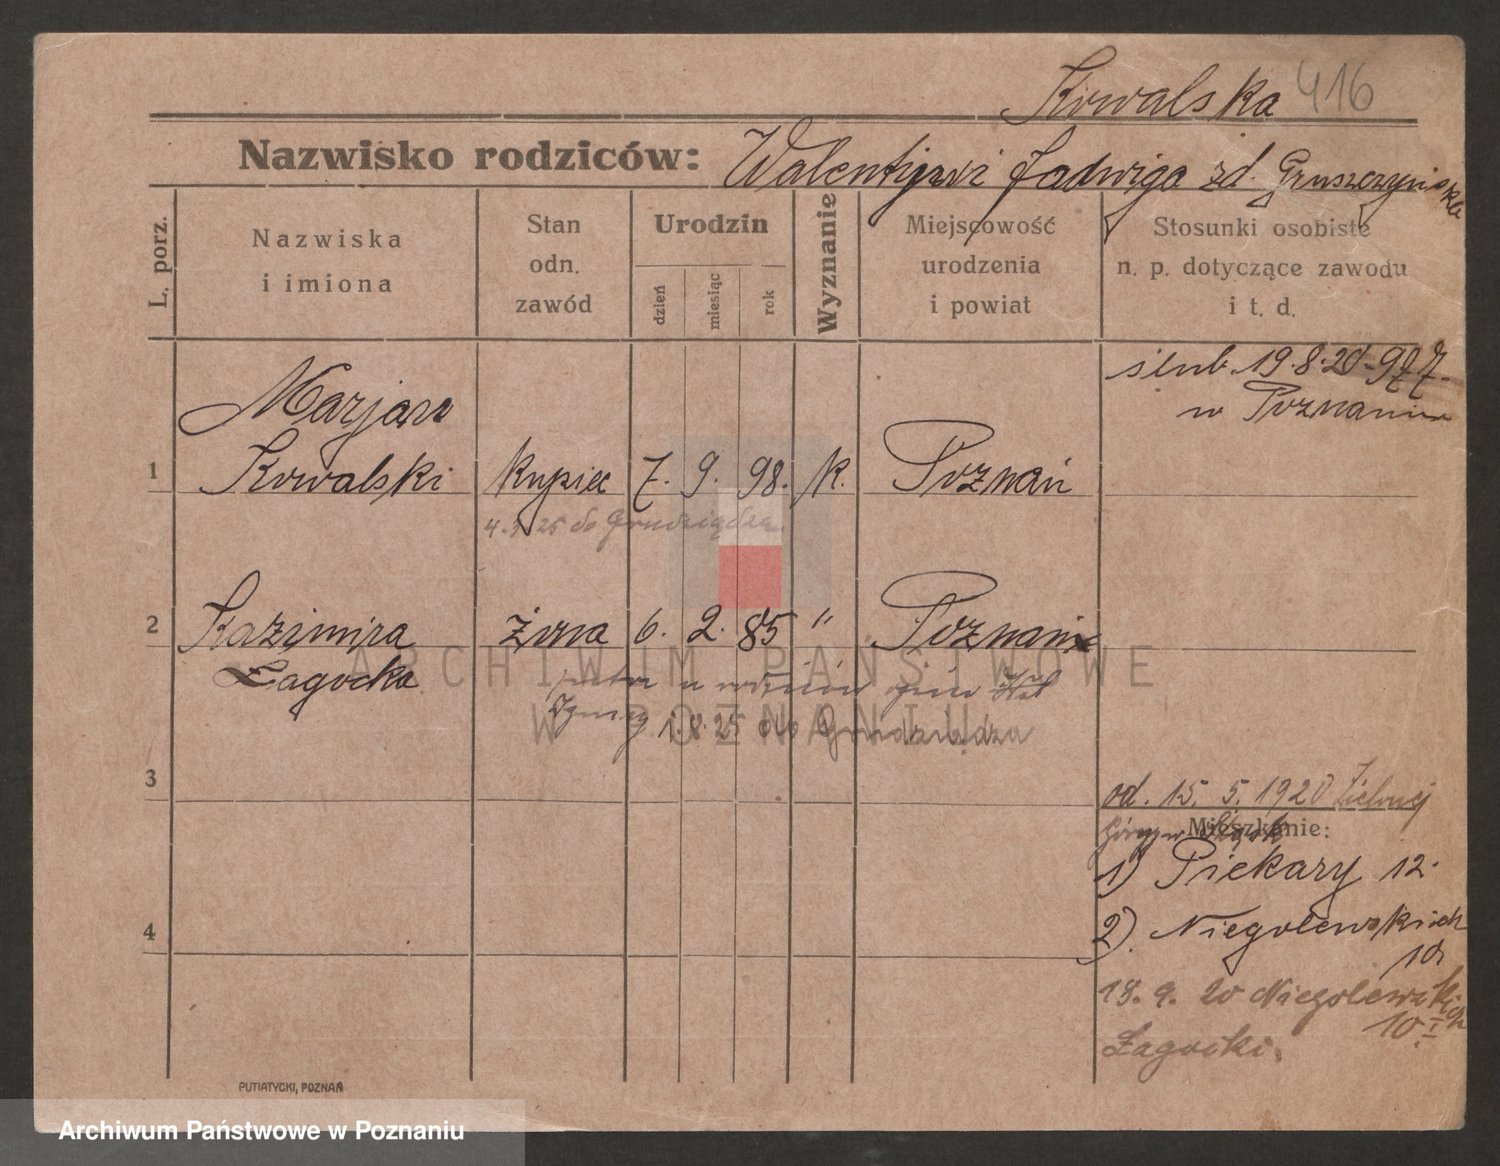 Kowalska 416
Nazwisko rodziców: Walentyn i Jadwiga zd. Gruszczyńska
L. porz.
Nazwiska
i imiona
Stan
odn.
zawód
Urodzin
dzień
miesiąc
rok
Wyznanie
Miejscowość
urodzenia
i powiat
Stosunki osobiste
n. p. dotyczące zawodu
i t. d.
ślub. 19.8.20-977.
w Poznaniu
Marjan
1 Kowalski kupiec 7. 9. 98. k. Poznań
25 do Grudziądza
2 Kazimira żona 6. 2. 85 " Poznań
Łagocka
u rodziców
1.8.25 do Grudziądza
3
od. 15. 5. 1920 Zielonej
Mieszkanie:
1) Piekary 12.
2). Niegolewskich
10
4
18. 9. 20 Niegolewskich
10 I
Łagocki.
PUTIATYCKI, POZNAŃ
ARCHIWUM PAŃSTWOWE
W POZNANIU
Archiwum Państwowe w Poznaniu